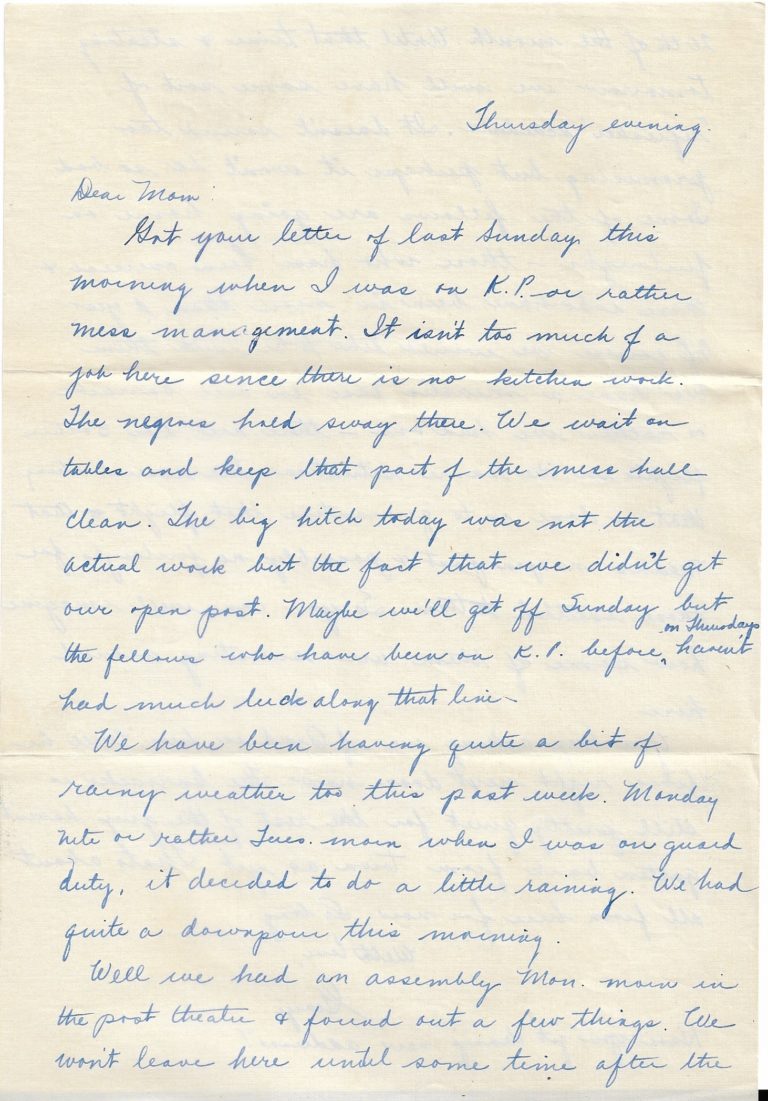 Thursday evening.
Dear Mom:
Got your letter of last Sunday this
morning when I was on K.P. or rather
mess management. It isn't too much of a
job here since there is no kitchen work.
The negroes hold sway there. We wait on
tables and keep that part of the mess hall
clean. The big hitch today was not the
actual work but the fact that we didn't get
our open post. Maybe we'll get off Sunday but
on Thursdays
the fellows who have been on K.P. before haven't
had much luck along that line.
We have been having quite a bit of
rainy weather too this past week. Monday
nite or rather Tues. morn when I was on guard
duty, it decided to do a little raining. We had
quite a downpour this morning.
Well we had an assembly Mon. morn in
the post theatre & found out a few things. We
won't leave here until some time after the